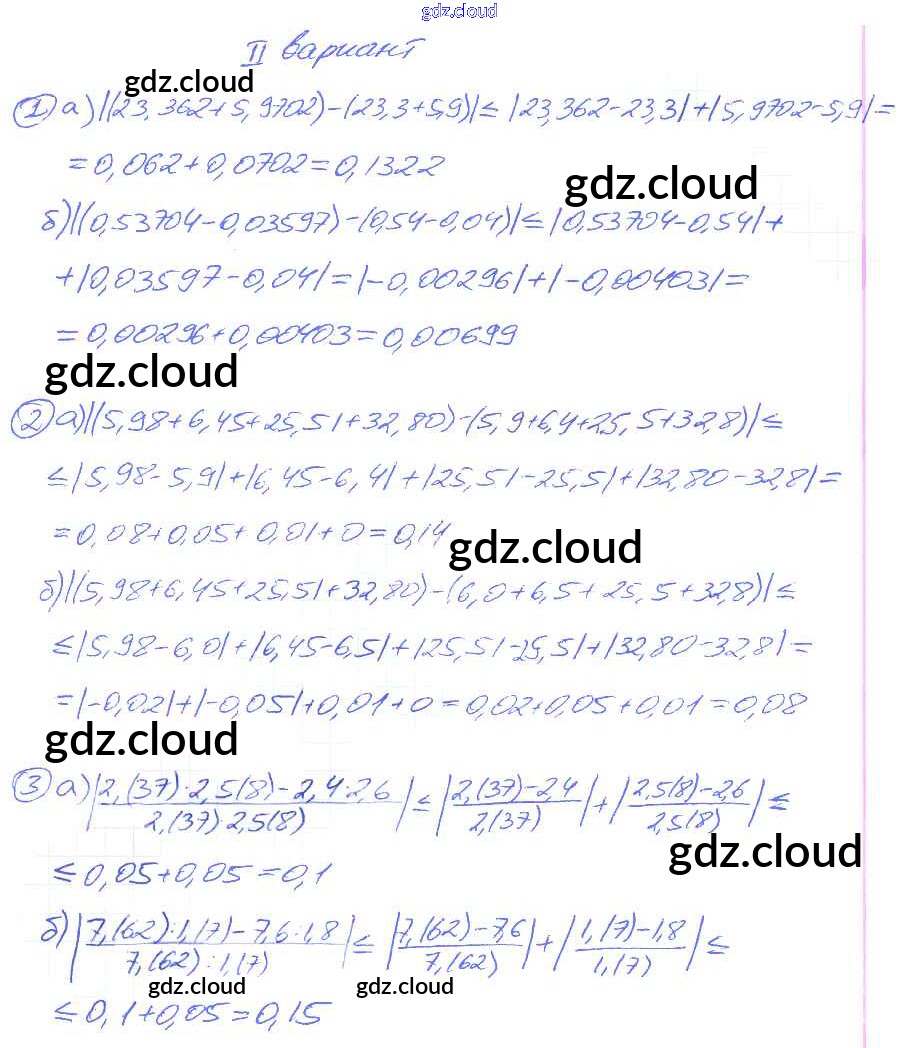 gdz.cloud
II вариант
gdz.cloud
① а) |(23,362+5,9702)-(23,3+5,9)| ≤ |23,362-23,3|+|5,9702-5,9|=
=0,062+0,0702=0,1322
gdz.cloud
б) |(0,53704-0,03597)-(0,54-0,04)| ≤ |0,53704-0,54|+
+|0,03597-0,04|=|-0,00296|+|-0,00403|=
=0,00296+0,00403=0,00699
gdz.cloud
② а) |(5,98+6,45+25,51+32,80)-(5,9+6,4+25,5+32,8)| ≤
≤ |5,98-5,9|+|6,45-6,4|+|25,51-25,5|+|32,80-32,8|=
=0,08+0,05+0,01+0=0,14
gdz.cloud
б) |(5,98+6,45+25,51+32,80)-(6,0+6,5+25,5+32,8)| ≤
≤ |5,98-6,0|+|6,45-6,5|+|25,51-25,5|+|32,80-32,8|=
=|-0,02|+|-0,05|+0,01+0=0,02+0,05+0,01=0,08
gdz.cloud
③ а) |(2,(37)·2,5(8)-2,4·2,6)/(2,(37)·2,5(8))| ≤ |(2,(37)-2,4)/(2,(37))|+|(2,5(8)-2,6)/(2,5(8))| ≤
gdz.cloud
≤ 0,05+0,05=0,1
б) |(7,(62):1,(7)-7,6:1,8)/(7,(62):1,(7))| ≤ |(7,(62)-7,6)/(7,(62))|+|(1,(7)-1,8)/(1,(7))| ≤
gdz.cloud gdz.cloud
≤ 0,1+0,05=0,15